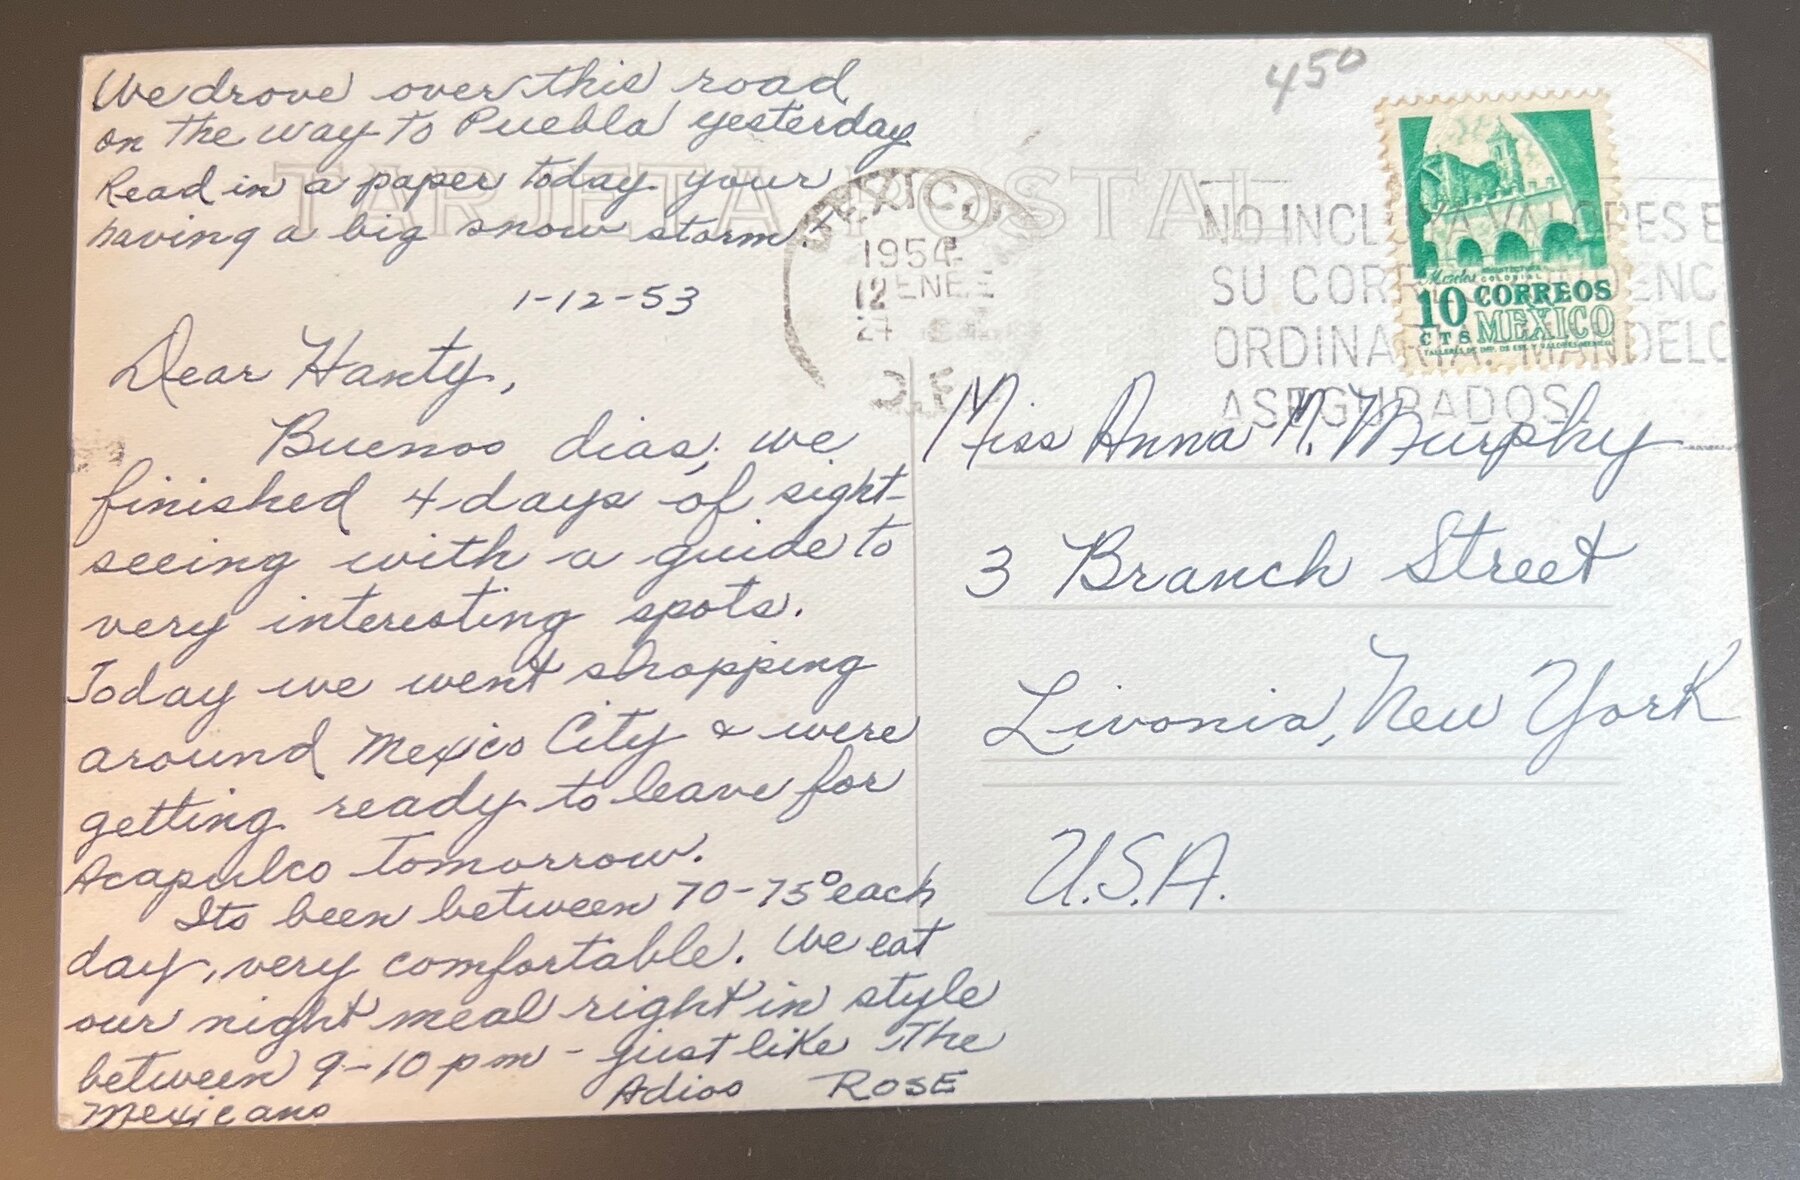 We drove over this road
on the way to Puebla yesterday
Read in a paper today your
having a big snow storm.
TARJETA POSTAL
450
1-12-53
MEXICO
1954
12 ENE
D.F.
NO INCLUYA VALORES E
SU CORRESPONDENC
ORDINARIA. MANDELO
ASEGURADOS
Morelos ARQUITECTURA
COLONIAL
10 CORREOS
CTS MEXICO
TALLERES DE IMP. DE EST. Y VALORES-MEXICO
Dear Hanty,
Buenos dias, we
finished 4 days of sight-
seeing with a guide to
very interesting spots.
Today we went shopping
around Mexico City & were
getting ready to leave for
Acapulco tomorrow.
Its been between 70-75° each
day, very comfortable. We eat
our night meal right in style
between 9-10 pm - just like The
Mexicano
Adios ROSE
Miss Anna M. Murphy
3 Branch Street
Livonia, New York
U.S.A.